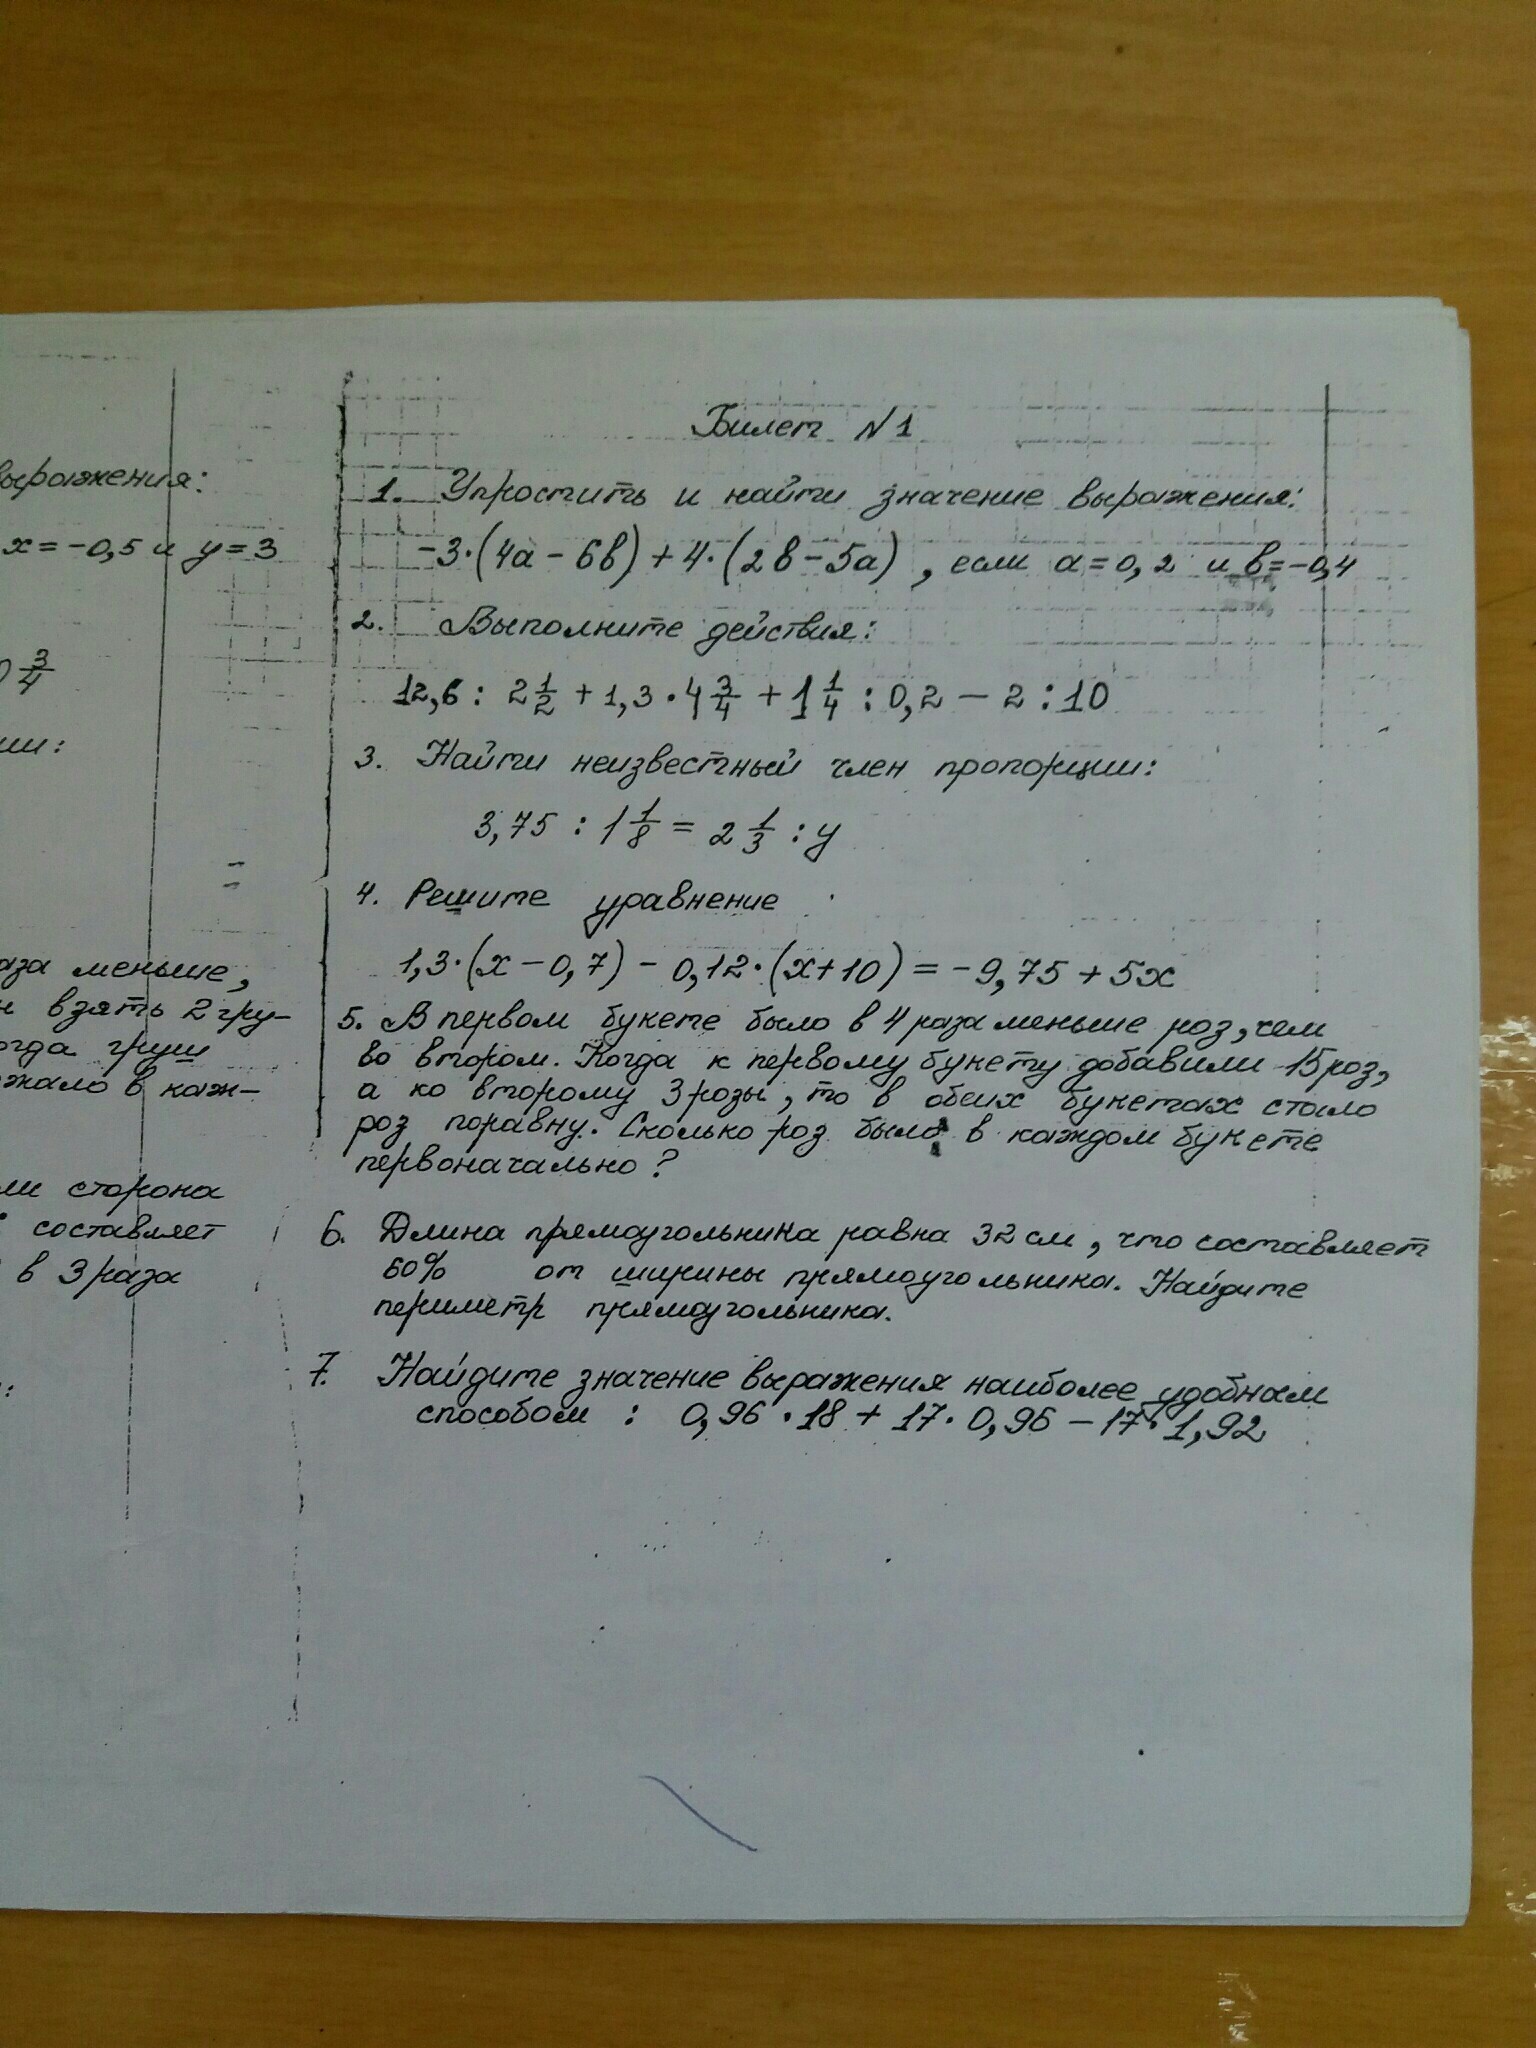 выражения:
x = -0,5 и y = 3
3/4
ии:
аза меньше,
н взять 2 гру-
огда груш
жало в каж-
ли сторона
составляет
в 3 раза
Билет N1
1. Упростить и найти значение выражения:
-3·(4a - 6b) + 4·(2b - 5a), если a = 0,2 и b = -0,4
2. Выполните действия:
12,6 : 2 1/2 + 1,3 · 4 3/4 + 1 1/4 : 0,2 - 2 : 10
3. Найти неизвестный член пропорции:
3,75 : 1 1/8 = 2 1/3 : y
4. Решите уравнение
1,3·(x - 0,7) - 0,12·(x + 10) = -9,75 + 5x
5. В первом букете было в 4 раза меньше роз, чем
во втором. Когда к первому букету добавили 15 роз,
а ко второму 3 розы, то в обеих букетах стало
роз поравну. Сколько роз было в каждом букете
первоначально?
6. Длина прямоугольника равна 32 см, что составляет
60% от ширины прямоугольника. Найдите
периметр прямоугольника.
7. Найдите значение выражения наиболее удобным
способом : 0,96 · 18 + 17 · 0,96 - 17 · 1,92